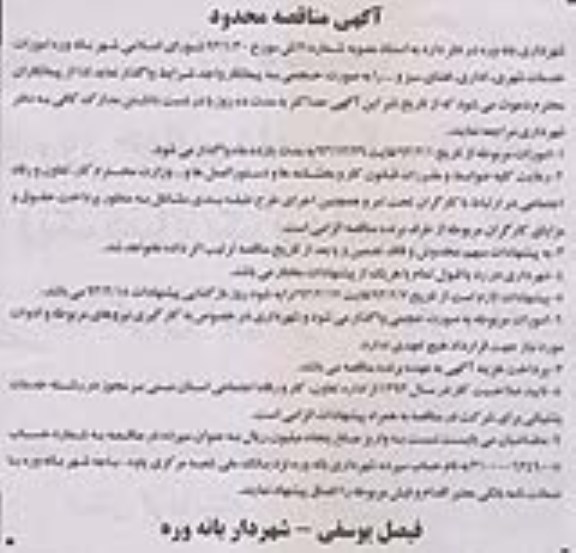 آگهی مناقصه محدود
شهرداری بانه وره در نظر دارد به استناد مصوبه شماره مورخ شورای اسلامی شهر بانه وره امورات
خدمات شهری، اداری، فضای سبز و ... را به صورت حجمی به پیمانکار واجد شرایط واگذار نماید لذا از پیمانکاران
محترم دعوت می شود که از تاریخ نشر این آگهی حداکثر به مدت ده روز با در دست داشتن مدارک کافی به دفتر
شهرداری مراجعه نمایند.
۱- امورات مربوطه از تاریخ لغایت به مدت یازده ماه واگذار می شود.
۲- رعایت کلیه ضوابط و مقررات قانون کار و بخشنامه ها و دستورالعمل های وزارت محترم کار، تعاون و رفاه
اجتماعی در ارتباط با کارگران تحت امر و همچنین اجرای طرح طبقه بندی مشاغل به منظور پرداخت حقوق و
مزایای کارگران مربوطه از طرف برنده مناقصه الزامی است.
۳- به پیشنهادات مبهم مخدوش و فاقد تضمین و یا بعد از تاریخ مناقصه ترتیب اثر داده نخواهد شد.
۴- شهرداری در رد یا قبول تمام یا هر یک از پیشنهادات مختار می باشد.
۵- پیشنهادات لازم است از تاریخ لغایت ارایه شود روز بازگشایی پیشنهادات می باشد.
۶- امورات مربوطه به صورت حجمی واگذار می شود و شهرداری در خصوص به کارگیری نیروهای مربوطه و ادوات
مورد نیاز جهت قرارداد هیچ تعهدی ندارد.
۷- پرداخت هزینه آگهی به عهده برنده مناقصه می باشد.
۸- تایید صلاحیت کار در سال ۱۳۹۳ از اداره تعاون، کار و رفاه اجتماعی استان مبنی بر مجوز در رشته خدمات
پشتیبانی برای شرکت در مناقصه به همراه پیشنهادات الزامی است.
۹- متقاضیان می بایست نسبت به واریز مبلغ پنجاه میلیون ریال به عنوان سپرده در مناقصه به شماره حساب
به نام حساب سپرده شهرداری بانه وره نزد بانک ملی شعبه مرکزی پاوه، ساعه شهر بانه وره یا
ضمانت نامه بانکی معتبر اقدام و فیش مربوطه را اتصال پیشنهاد نمایند.
فیصل یوسفی - شهردار بانه وره